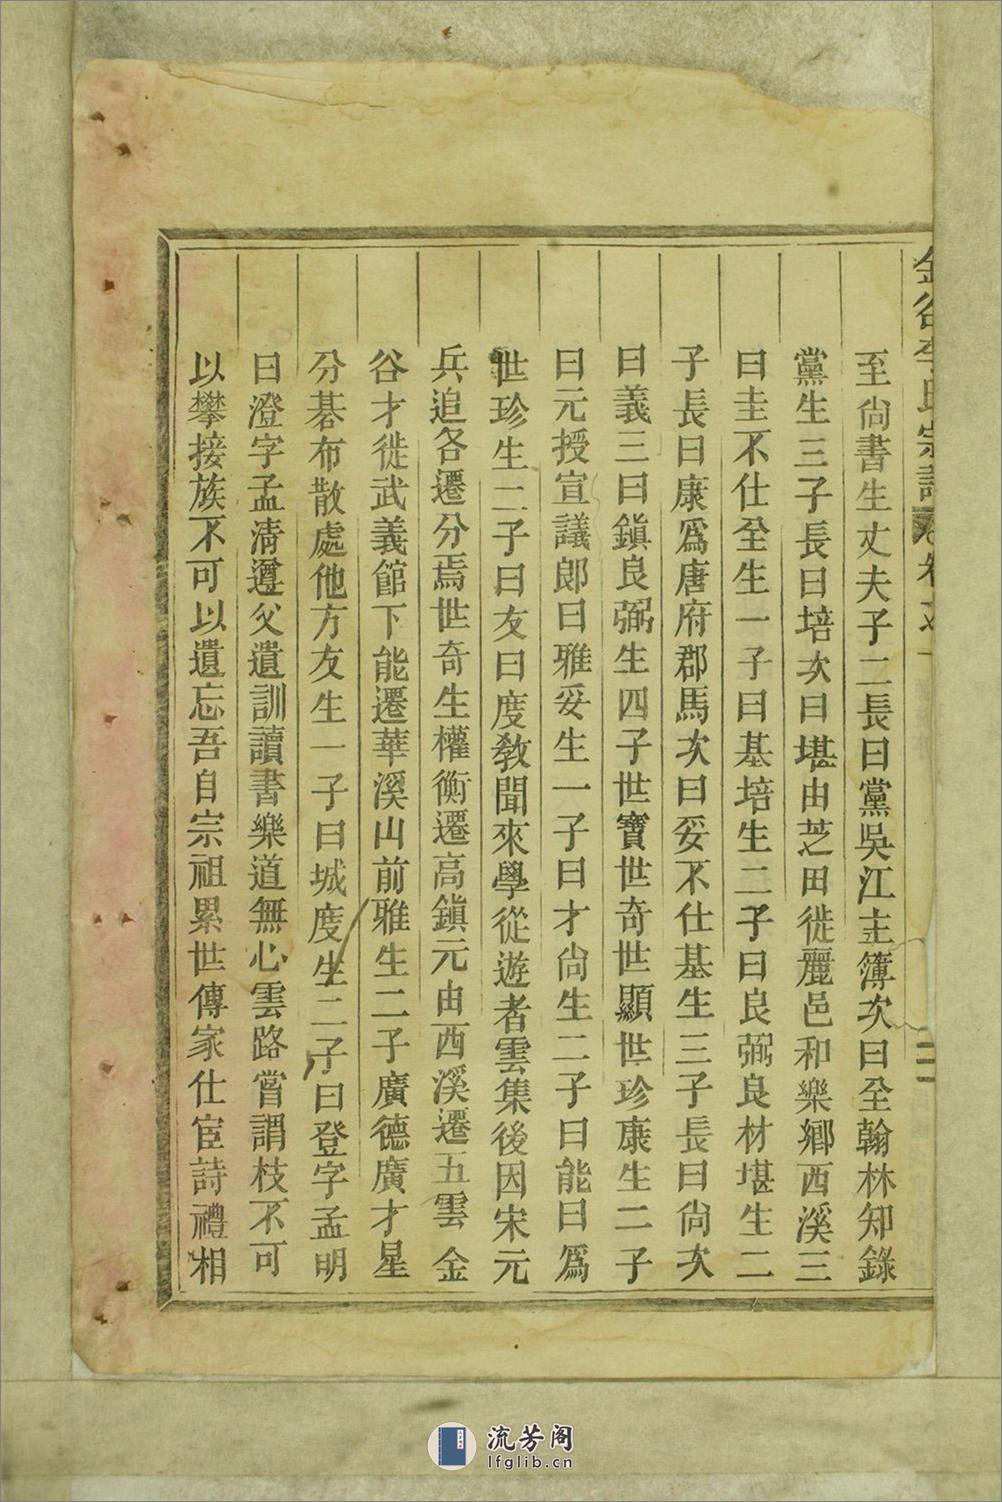 金谷李氏宗譜 卷之一
至尙書生丈夫子二長曰黨吳江主簿次曰全翰林知錄
黨生三子長曰培次曰堪由芝田徙麗邑和樂鄉西溪三
曰圭不仕全生一子曰基培生二子曰良弼良材堪生二
子長曰康爲唐府郡馬次曰妥不仕基生三子長曰尙次
曰義三曰鎭良弼生四子世寶世奇世顯世珍康生二子
曰元授宣議郞曰雅妥生一子曰才尙生二子曰能曰爲
世珍生二子曰友曰度敎聞來學從遊者雲集後因宋元
兵追各遷分焉世奇生權衡遷高鎭元由西溪遷五雲金
谷才徙武義館下能遷華溪山前雅生二子廣德廣才星
分碁布散處他方友生一子曰城度生二子曰登字孟明
曰澄字孟淸遵父遺訓讀書樂道無心雲路嘗謂枝不可
以攀接族不可以遺忘吾自宗祖累世傳家仕宦詩禮相
流芳阁
lfglib.cn